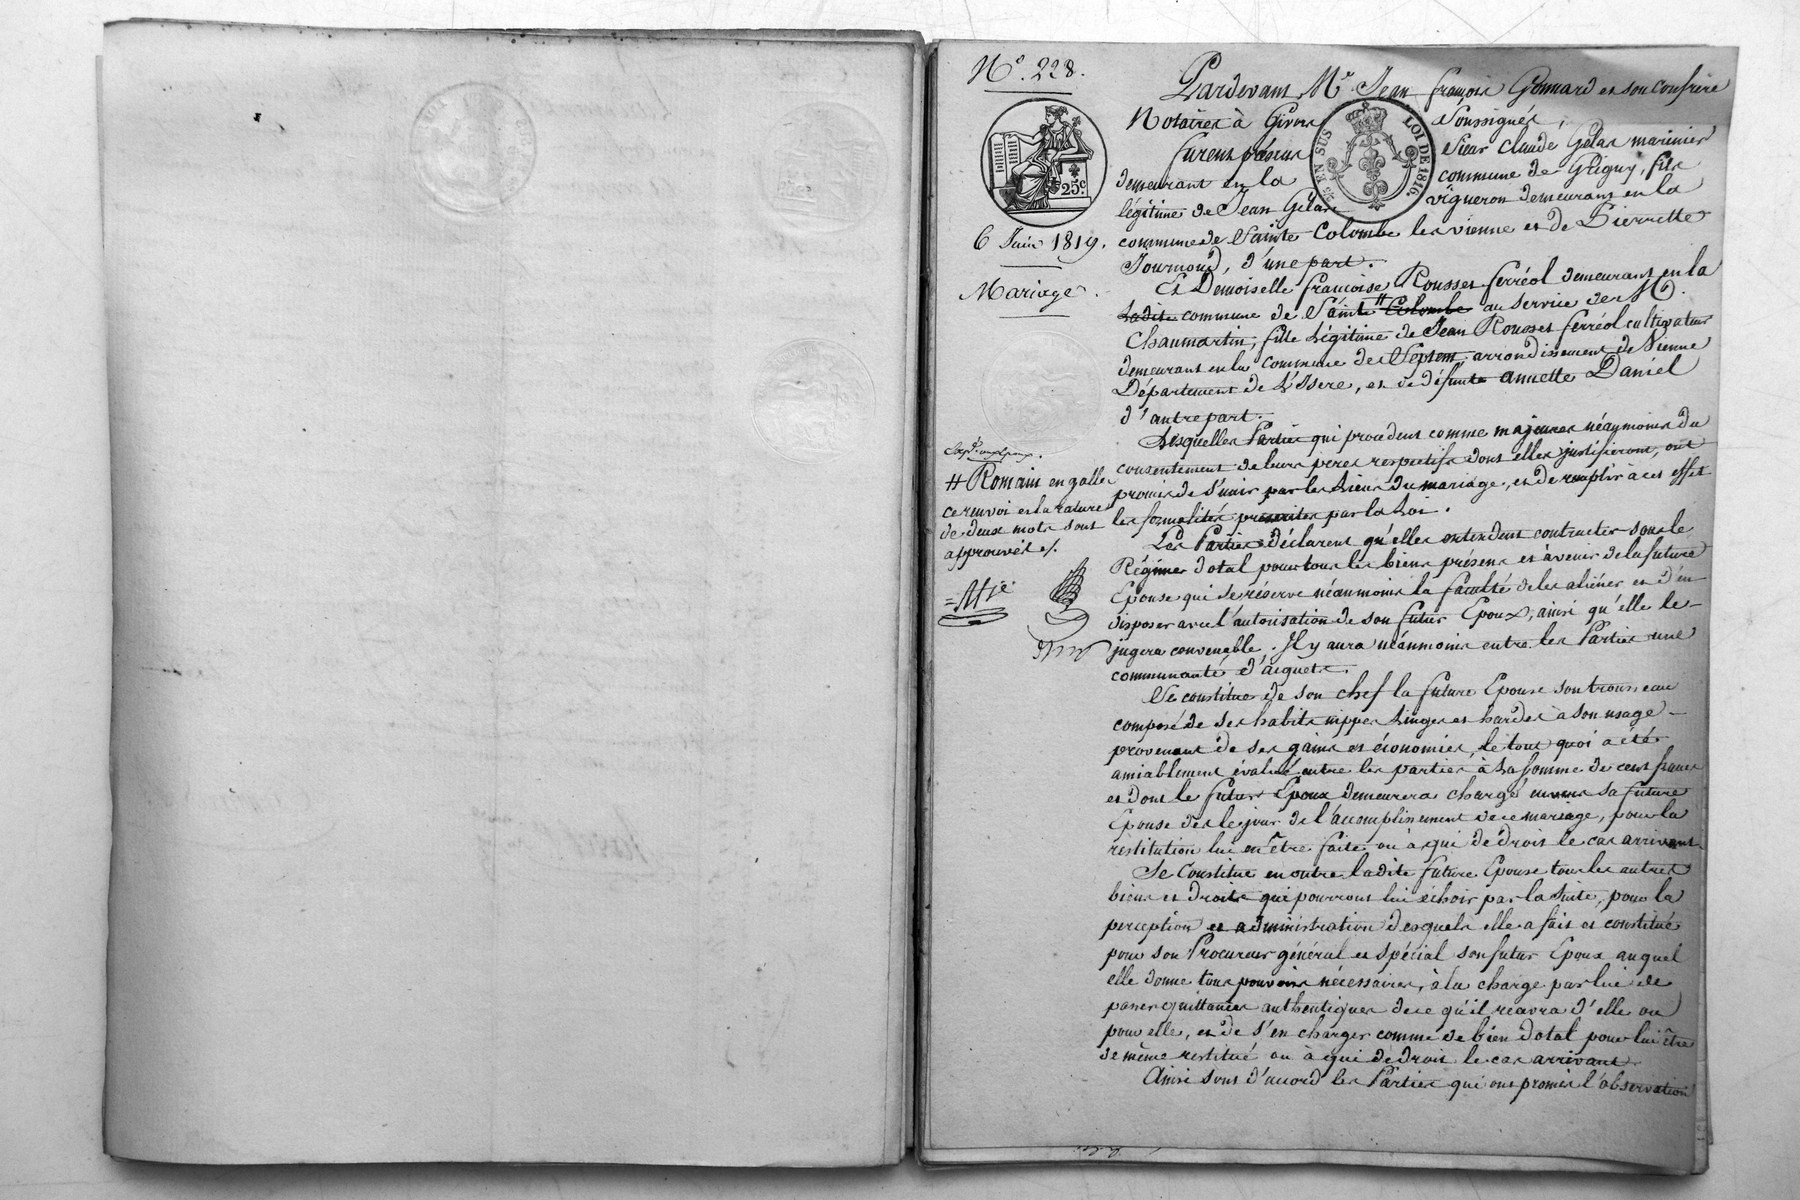 N.° 228.
25c.
6 Juin 1819.
Mariage.
Pardevant Mre. Jean françois Gonnard et son confrère
Notaires à Givors Soussignés,
25c. EN SUS LOI DE 1816.
furent présens Sieur claude Gelas marinier
demeurant en la commune de Grigny, fils
légitime de Jean Gelas vigneron demeurant en la
commune de Sainte Colombe les vienne et de Pierrette
Journoud, d'une part.
Et Demoiselle françoise Rousset ferréol demeurant en la
Ladite commune de Saint # Colombe au service de M.
Chaumartin, fille Légitime de Jean Rousset ferréol cultivateur
demeurant en la commune de Septem arrondissement de Vienne
Département de L'Isere, et de défunte annette Daniel
d'autre part.
Lesquelles Parties qui procedent comme majeures néanmoins du
consentement de leurs peres respectifs dont elles justifieront, ont
promis de s'unir par les Liens du mariage, et de remplir à cet effet
les formalités prescrites par la Loi.
# Romain en galle
ce renvoi et la rature
de deux mots sont
approuvés ./.
Les Parties déclarent qu'elles entendent contracter sous le
Régime dotal pour tous les biens présens et à venir de la future
Epouse qui se réserve néanmoins la faculté de les aliéner et d'en
disposer avec l'autorisation de son futur Epoux, ainsi qu'elle le
jugera convenable. Il y aura néanmoins entre les Parties une
communauté d'acquets.
Se constitue de son chef la future Epouse son trousseau
composé de ses habits nippes Linges et hardes à son usage
provenant de ses gains et économies, le tout quoi a été
amiablement évalué entre les parties à La somme de cent francs
et dont le futur Epoux demeurera chargé envers sa future
Epouse dès le jour de l'accomplissement de ce mariage, pour la
restitution lui en être faite ou à qui de droit le cas arrivant.
Se Constitue en outre ladite future Epouse tous les autres
biens et droits qui pourront lui échoir par la Suite, pour la
perception et administration desquels elle a fait et constitué
pour son Procureur général et spécial son futur Epoux auquel
elle donne tous pouvoirs nécessaires, à la charge par lui de
passer quittances authentiques de ce qu'il recevra d'elle ou
pour elle, et de s'en charger comme de bien dotal pour lui être
de même restitué ou à qui de droit le cas arrivant.
Ainsi sont d'accord les Parties qui ont promis l'observation